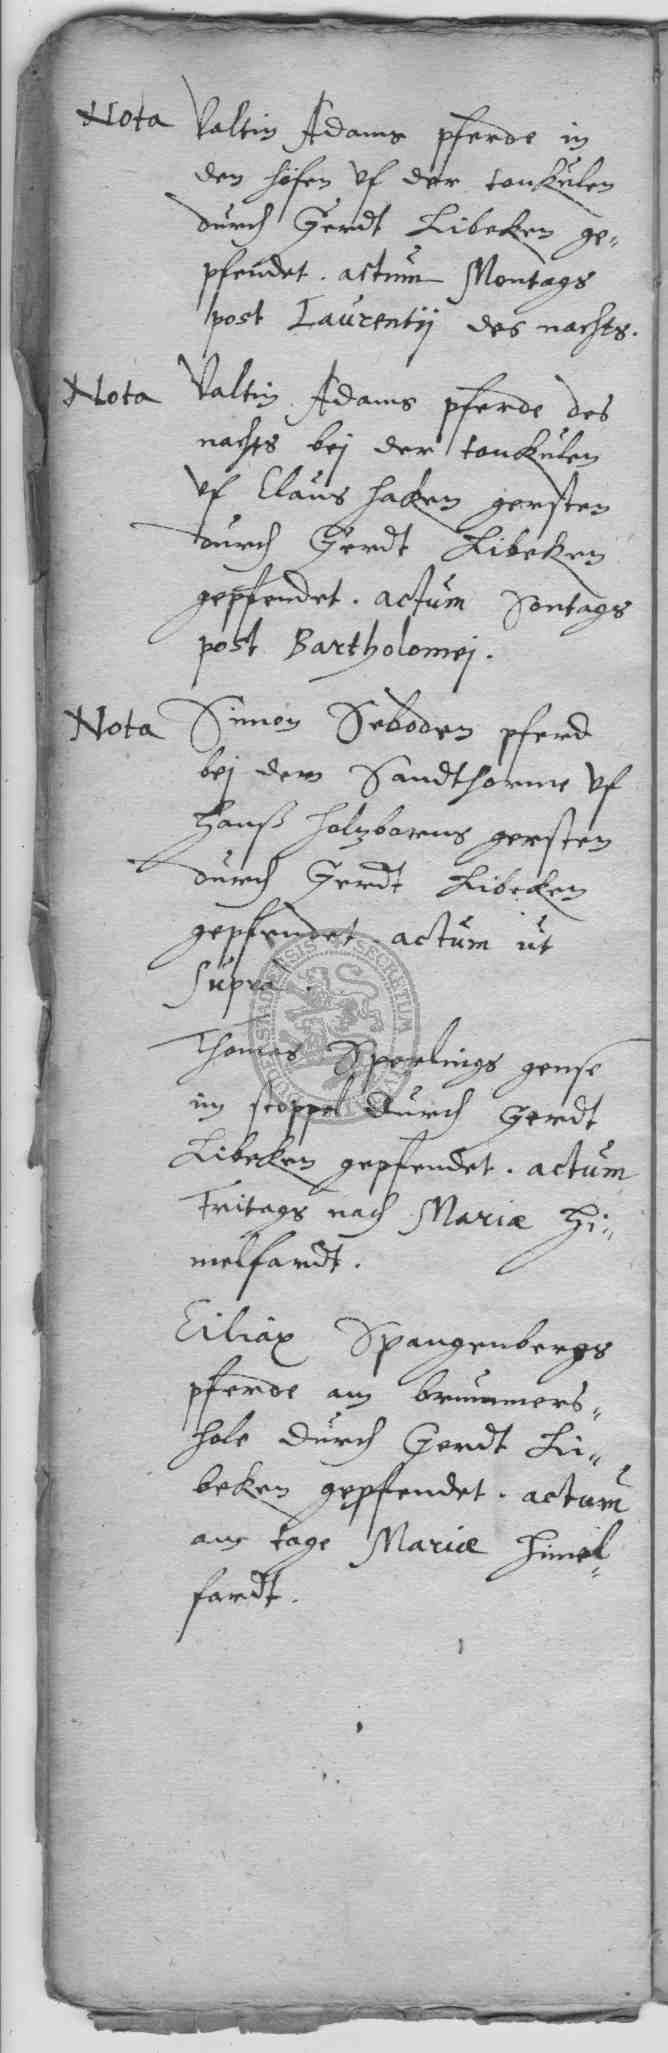 Nota Valtin Adams pferde in
den höfen vf der tonkulen
durch Gerdt Libeken ge-
pfendet. actum Montags
post Laurentij des nachts.
Nota Valtin Adams pferde des
nachts bej der tonkulen
vf Claus Haken gersten
durch Gerdt Libeken
gepfendet. actum Sontags
post Bartholomej.
Nota Simon Seboden pferd
bej dem Sandthorme vf
Hanß Holzborns gersten
durch Gerdt Libeken
gepfendet. actum ut
supra.
Thomas Sperlings gense
im stoppel durch Gerdt
Libeken gepfendet. actum
Fritags nach Mariæ Hi-
melfardt.
Ciliax Spangenbergs
pferde am brummers-
hole durch Gerdt Li-
beken gepfendet. actum
am tage Mariæ Himel-
fardt.